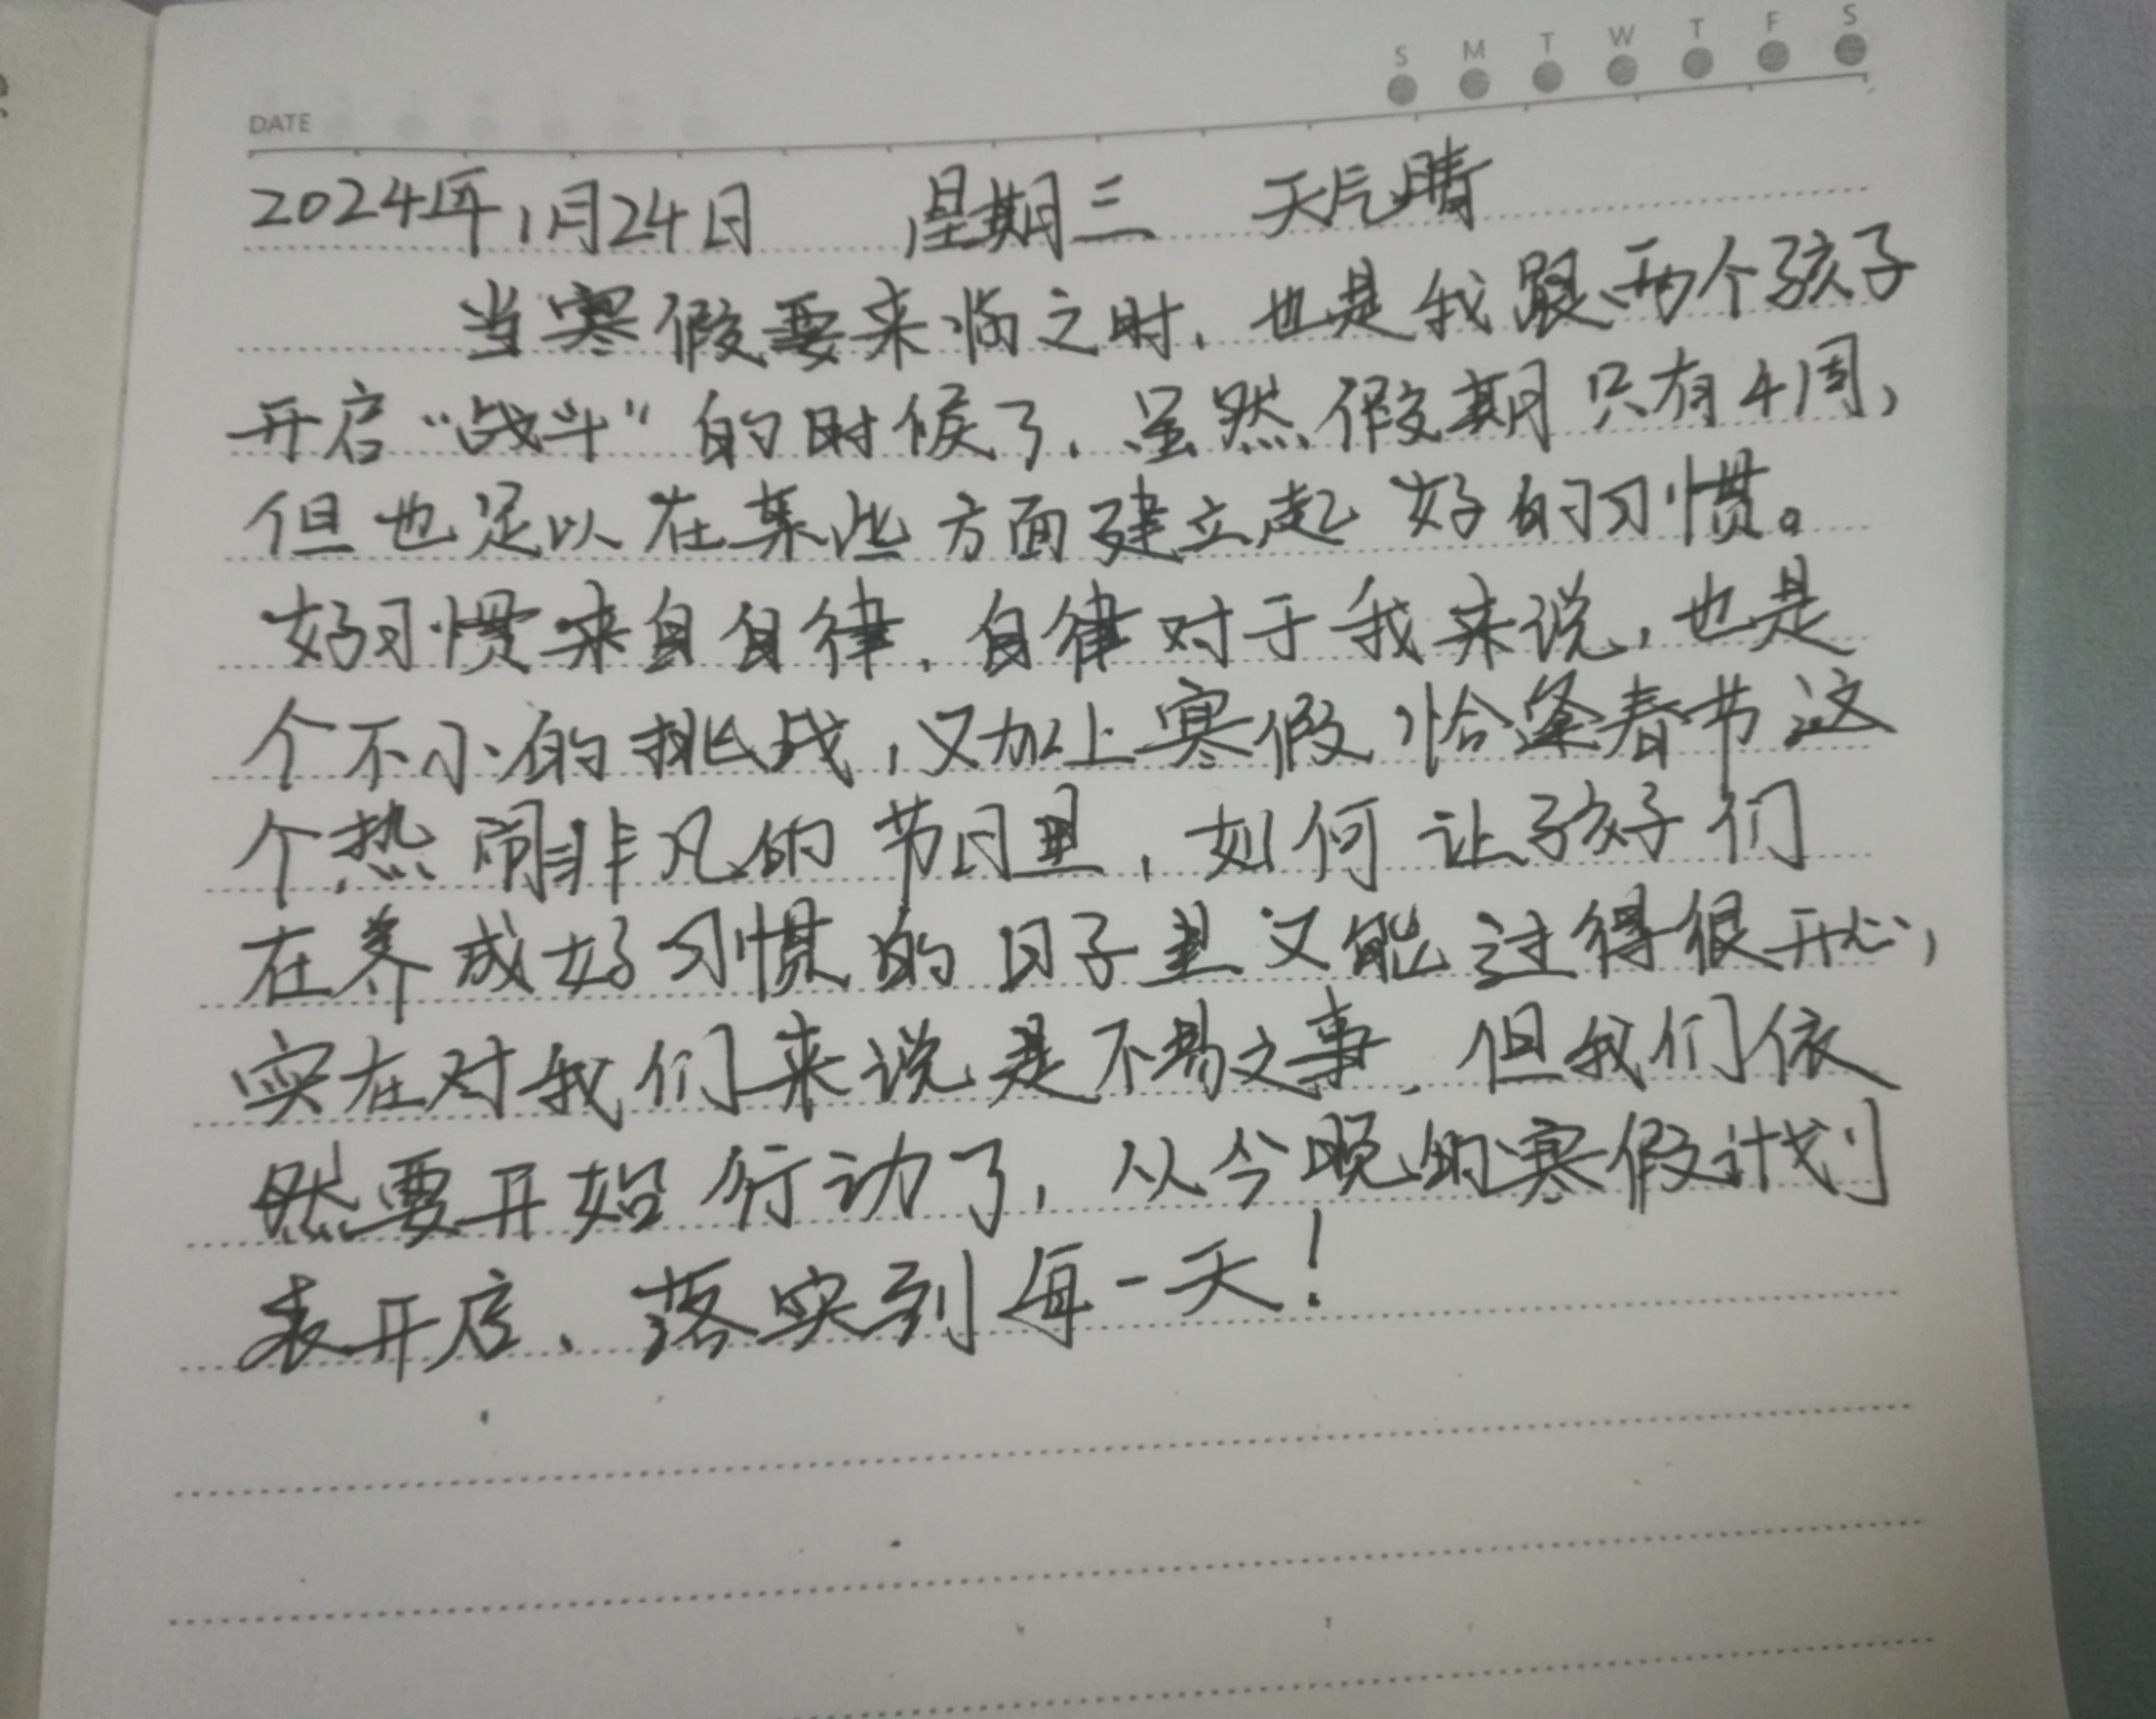 S M T W T F S
DATE
2024年1月24日 星期三 天气晴
当寒假要来临之时,也是我跟两个孩子
开启“战斗”的时候了,虽然假期只有4周,
但也足以在某些方面建立起好的习惯。
好习惯来自自律,自律对于我来说,也是
个不小的挑战,又加上寒假恰逢春节这
个热闹非凡的节日里,如何让孩子们
在养成好习惯的日子里又能过得很开心,
实在对我们来说是不易之事,但我们依
然要开始行动了,从今晚的寒假计划
表开启、落实到每一天!